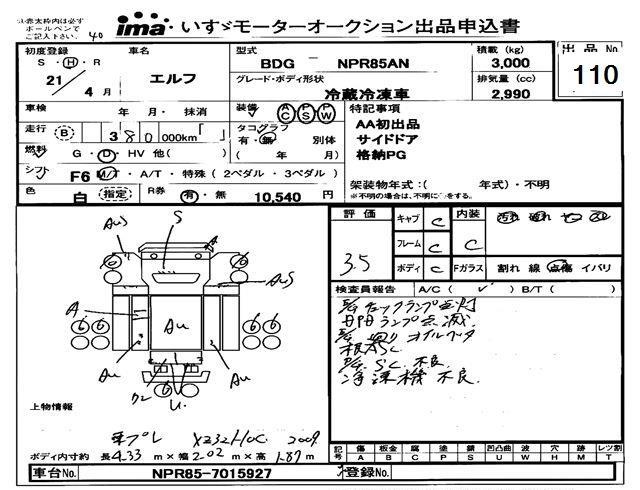 ※赤太枠内は必ず
ボールペンで
ご記入下さい。 40
ima いすゞモーターオークション出品申込書
初度登録 車名 型式 積載 (kg) 出品 No
S・H・R エルフ BDG NPR85AN 3,000 110
21 グレード・ボディ形状 排気量 (cc)
4 月 冷蔵冷凍車 2,990
車検 年 月・抹消 装備 AC PS PW 特記事項
走行 B 3 8 0 000km タコグラフ AA初出品
有・無 別体 サイドドア
燃料 G・D・HV 他( ) ( 年 月) 格納PG
シフト F6 M/T・A/T・特殊 (2ペダル・3ペダル)
架装物年式:( 年式)・不明
色 白 指定 R券 有・無 10,540 円
※不明の場合は、不明に○をする。
評価 キャブ C 内装 汚れ 破れ
3.5 フレーム C C
ボディ C Fガラス 割れ 線 点傷 イバリ
検査員報告 A/C ( ✓ ) B/T ( )
S
AuS
A
AuS
A
Au
Au
Au
U
6 6 6 6
チェックランプ点灯
ランプ点滅
オイル
SC
SC 不良
冷凍機 不良
上物情報
東プレ XZ32H0C 2009
ボディ内寸約 長4.33 m×幅2.02 m×高1.87 m
記号 傷 板金 腐 塗 錆 凹凸曲 波 穴 跡 レツ割
A B C P S U W H M T
車台No. NPR85-7015927 登録No.